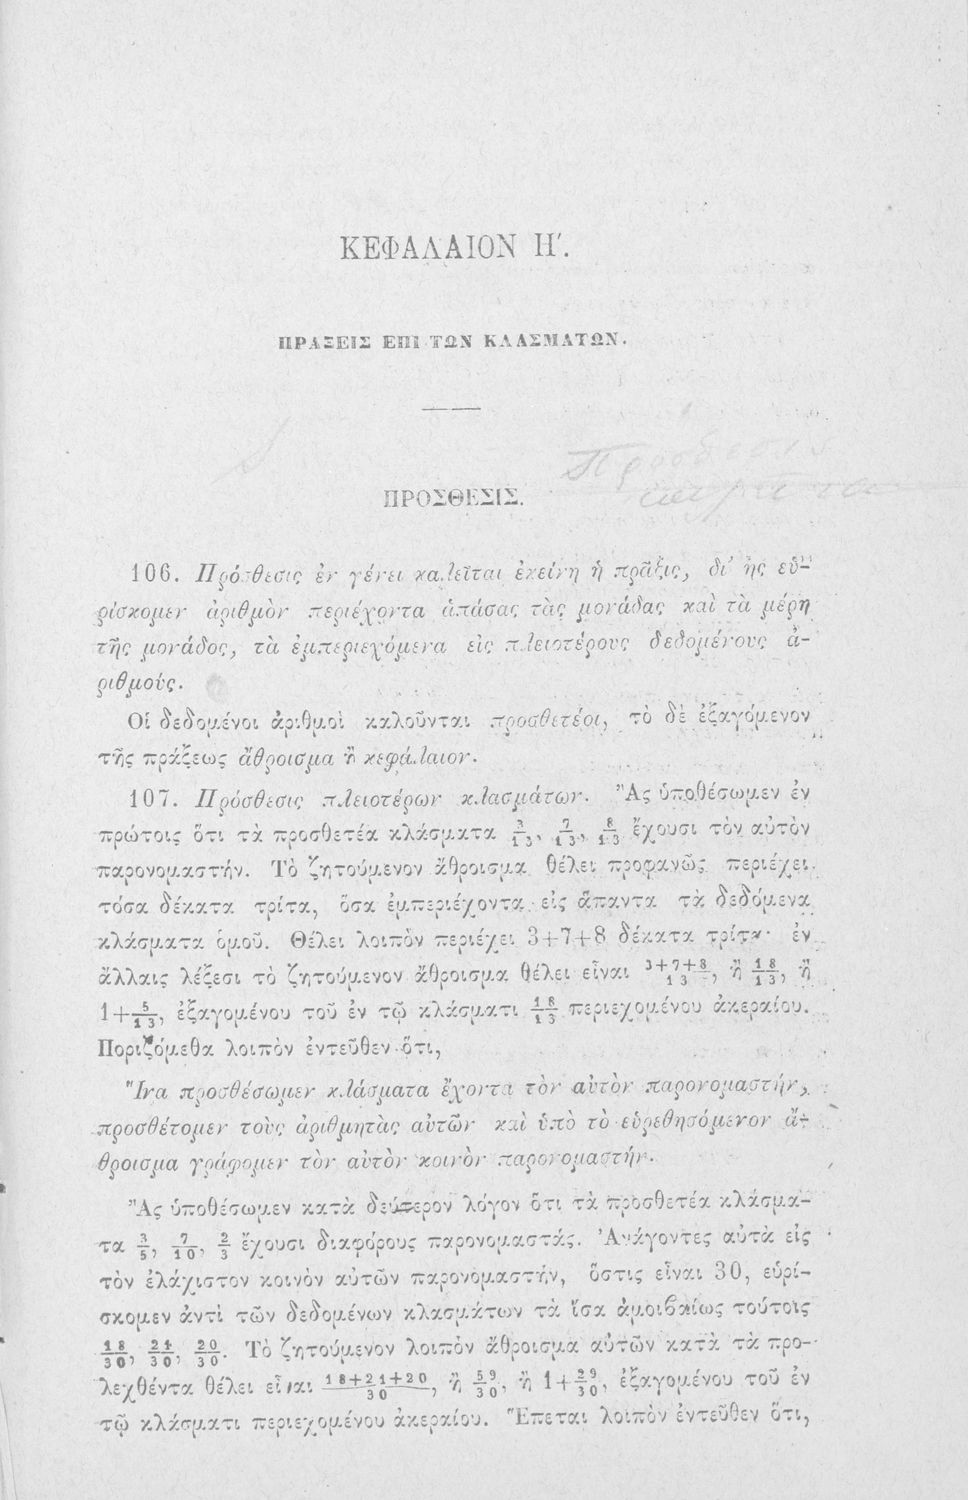 ΚΕΦΑΛΑΙΟΝ Η΄.
ΠΡΑΞΕΙΣ ΕΠΙ ΤΩΝ ΚΛΑΣΜΑΤΩΝ.
Πρόσθεσις
ΠΡΟΣΘΕΣΙΣ.
106. Πρόσθεσις ἐν γένει καλεῖται ἐκείνη ἡ πρᾶξις, δι᾽ ἧς εὑ-
ρίσκομεν ἀριθμὸν περιέχοντα ἁπάσας τὰς μονάδας καὶ τὰ μέρη
τῆς μονάδος, τὰ ἐμπεριεχόμενα εἰς πλειοτέρους δεδομένους ἀ-
ριθμούς.
Οἱ δεδομένοι ἀριθμοὶ καλοῦνται προσθετέοι, τὸ δὲ ἐξαγόμενον
τῆς πράξεως ἄθροισμα ἢ κεφάλαιον.
107. Πρόσθεσις πλειοτέρων κλασμάτων. Ἂς ὑποθέσωμεν ἐν
πρώτοις ὅτι τὰ προσθετέα κλάσματα 3/13, 7/13, 8/13 ἔχουσι τὸν αὐτὸν
παρονομαστήν. Τὸ ζητούμενον ἄθροισμα θέλει προφανῶς περιέχει
τόσα δέκατα τρίτα, ὅσα ἐμπεριέχονται εἰς ἅπαντα τὰ δεδόμενα
κλάσματα ὁμοῦ. Θέλει λοιπὸν περιέχει 3+7+8 δέκατα τρίτα· ἐν
ἄλλαις λέξεσι τὸ ζητούμενον ἄθροισμα θέλει εἶναι (3+7+8)/13, ἢ 18/13, ἢ
1+5/13, ἐξαγομένου τοῦ ἐν τῷ κλάσματι 18/13 περιεχομένου ἀκεραίου.
Ποριζόμεθα λοιπὸν ἐντεῦθεν ὅτι,
Ἵνα προσθέσωμεν κλάσματα ἔχοντα τὸν αὐτὸν παρονομαστήν,
προσθέτομεν τοὺς ἀριθμητὰς αὐτῶν καὶ ὑπὸ τὸ εὑρεθησόμενον ἄ-
θροισμα γράφομεν τὸν αὐτὸν κοινὸν παρονομαστήν.
Ἂς ὑποθέσωμεν κατὰ δεύτερον λόγον ὅτι τὰ προσθετέα κλάσμα-
τα 3/5, 7/10, 2/3 ἔχουσι διαφόρους παρονομαστάς. Ἀνάγοντες αὐτὰ εἰς
τὸν ἐλάχιστον κοινὸν αὐτῶν παρονομαστήν, ὅστις εἶναι 30, εὑρί-
σκομεν ἀντὶ τῶν δεδομένων κλασμάτων τὰ ἴσα ἀμοιβαίως τούτοις
18/30, 21/30, 20/30. Τὸ ζητούμενον λοιπὸν ἄθροισμα αὐτῶν κατὰ τὰ προ-
λεχθέντα θέλει εἶναι (18+21+20)/30, ἢ 59/30, ἢ 1+29/30, ἐξαγομένου τοῦ ἐν
τῷ κλάσματι περιεχομένου ἀκεραίου. Ἕπεται λοιπὸν ἐντεῦθεν ὅτι,